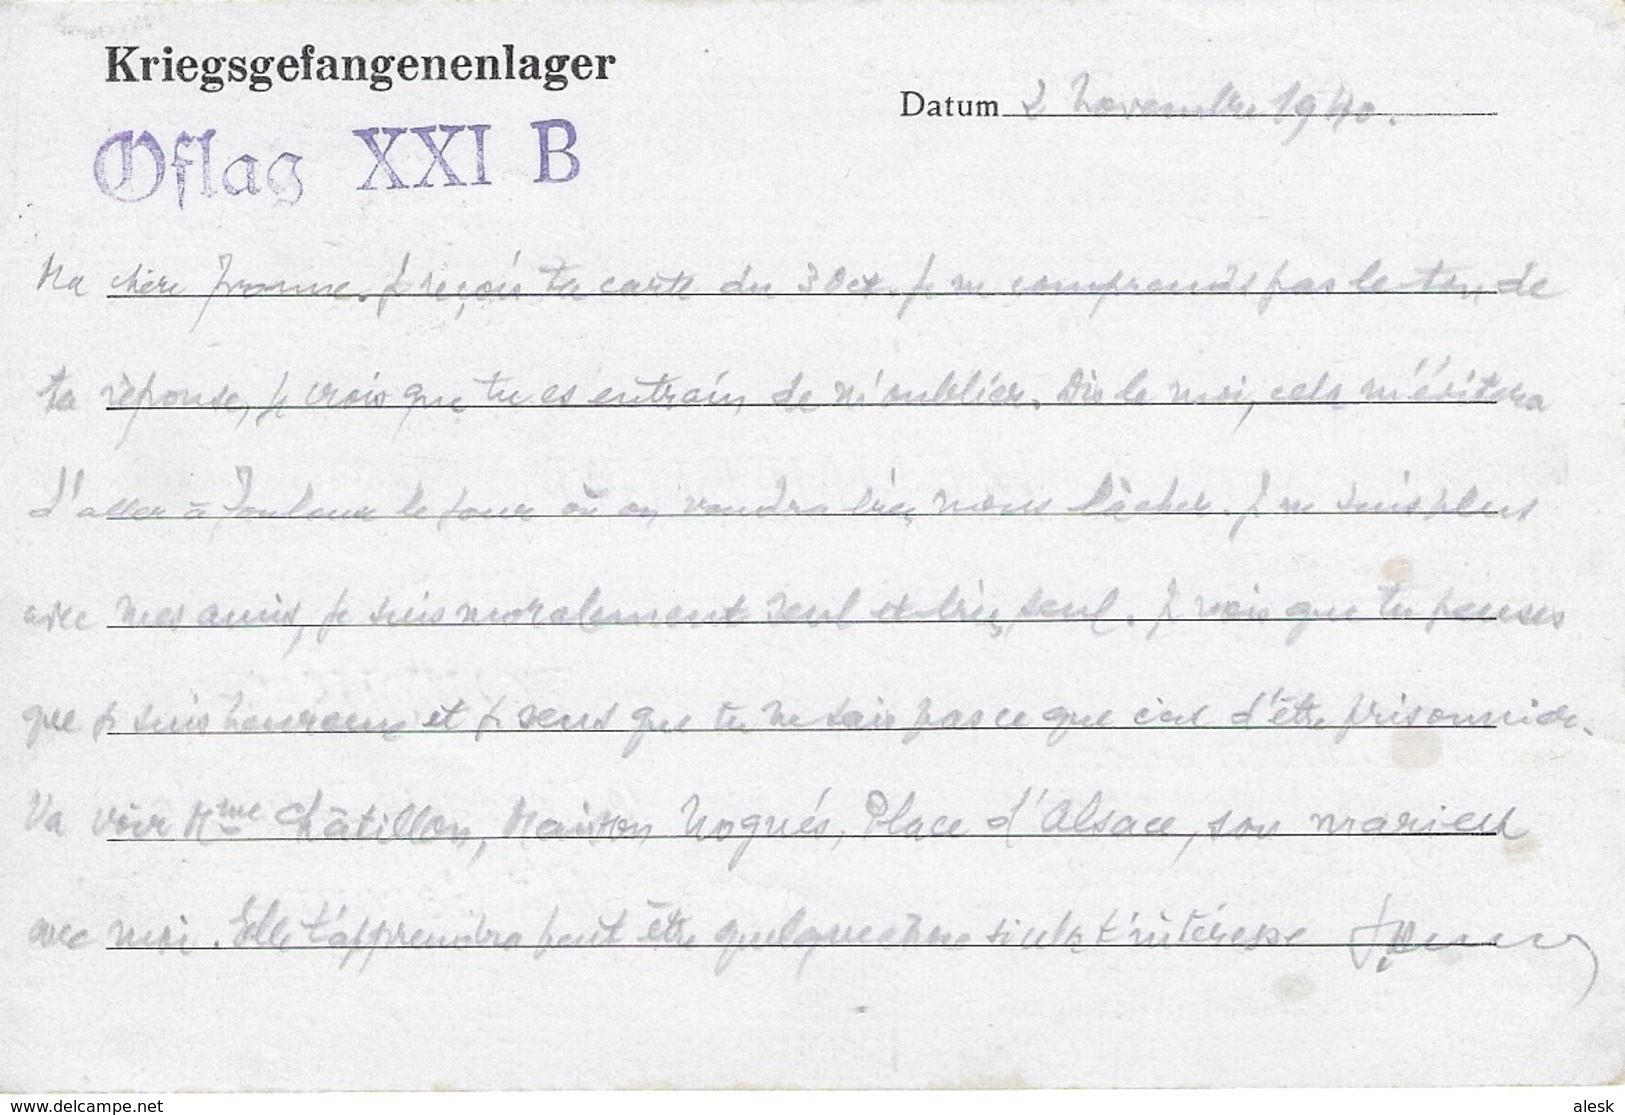 Kriegsgefangenenlager
Datum 2 Novembre 1940.
Oflag XXI B
Ma chère Yvonne. Je reçois ta carte du 3 Oct. Je ne comprends pas le ton de
ta réponse, je crois que tu es entrain de m'oublier. Dis le moi, cela m'évitera
d'aller à Toulouse le jour où on voudra bien nous lâcher. Je ne suis plus
avec mes amis, je suis moralement seul et très seul. Je vois que tu penses
que je suis heureux et je sens que tu ne sais pas ce que c'est d'être prisonnier.
Va voir Mme Châtillon, Maison Noguès, Place d'Alsace, son mari est
avec moi. Elle t'apprendra peut être quelque chose si cela t'intéresse
delcampe.net
alesk